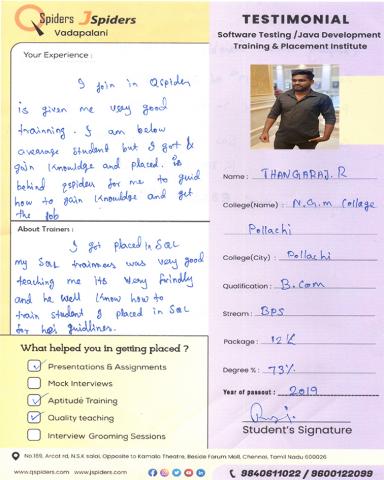 QSpiders JSpiders
Vadapalani
Your Experience :
I join in Qspider
is given me very good
trainning. I am below
avarage student but I got &
gain knowldge and placed. is
behind qspider for me to guid
how to gain knowldge and get
the job
About Trainers :
I got placed in SQL
my SQL trainners was very good
teaching me its very frindly
and he well know how to
train student I placed in SQL
for his guidlines.
What helped you in getting placed ?
Presentations & Assignments
Mock Interviews
Aptitude Training
Quality teaching
Interview Grooming Sessions
TESTIMONIAL
Software Testing /Java Development
Training & Placement Institute
Name : THANGARAJ. R
College(Name) : N.G.m College
Pollachi
College(City) : Pollachi
Qualification : B.Com
Stream : BPS
Package : 12 K
Degree % : 73%
Year of passout : 2019
Student's Signature
No.169, Arcot rd, N.S.K salai, Opposite to Kamala Theatre, Beside Forum Mall, Chennai, Tamil Nadu 600026
www.qspiders.com www.jspiders.com
9840611022 / 9600122099